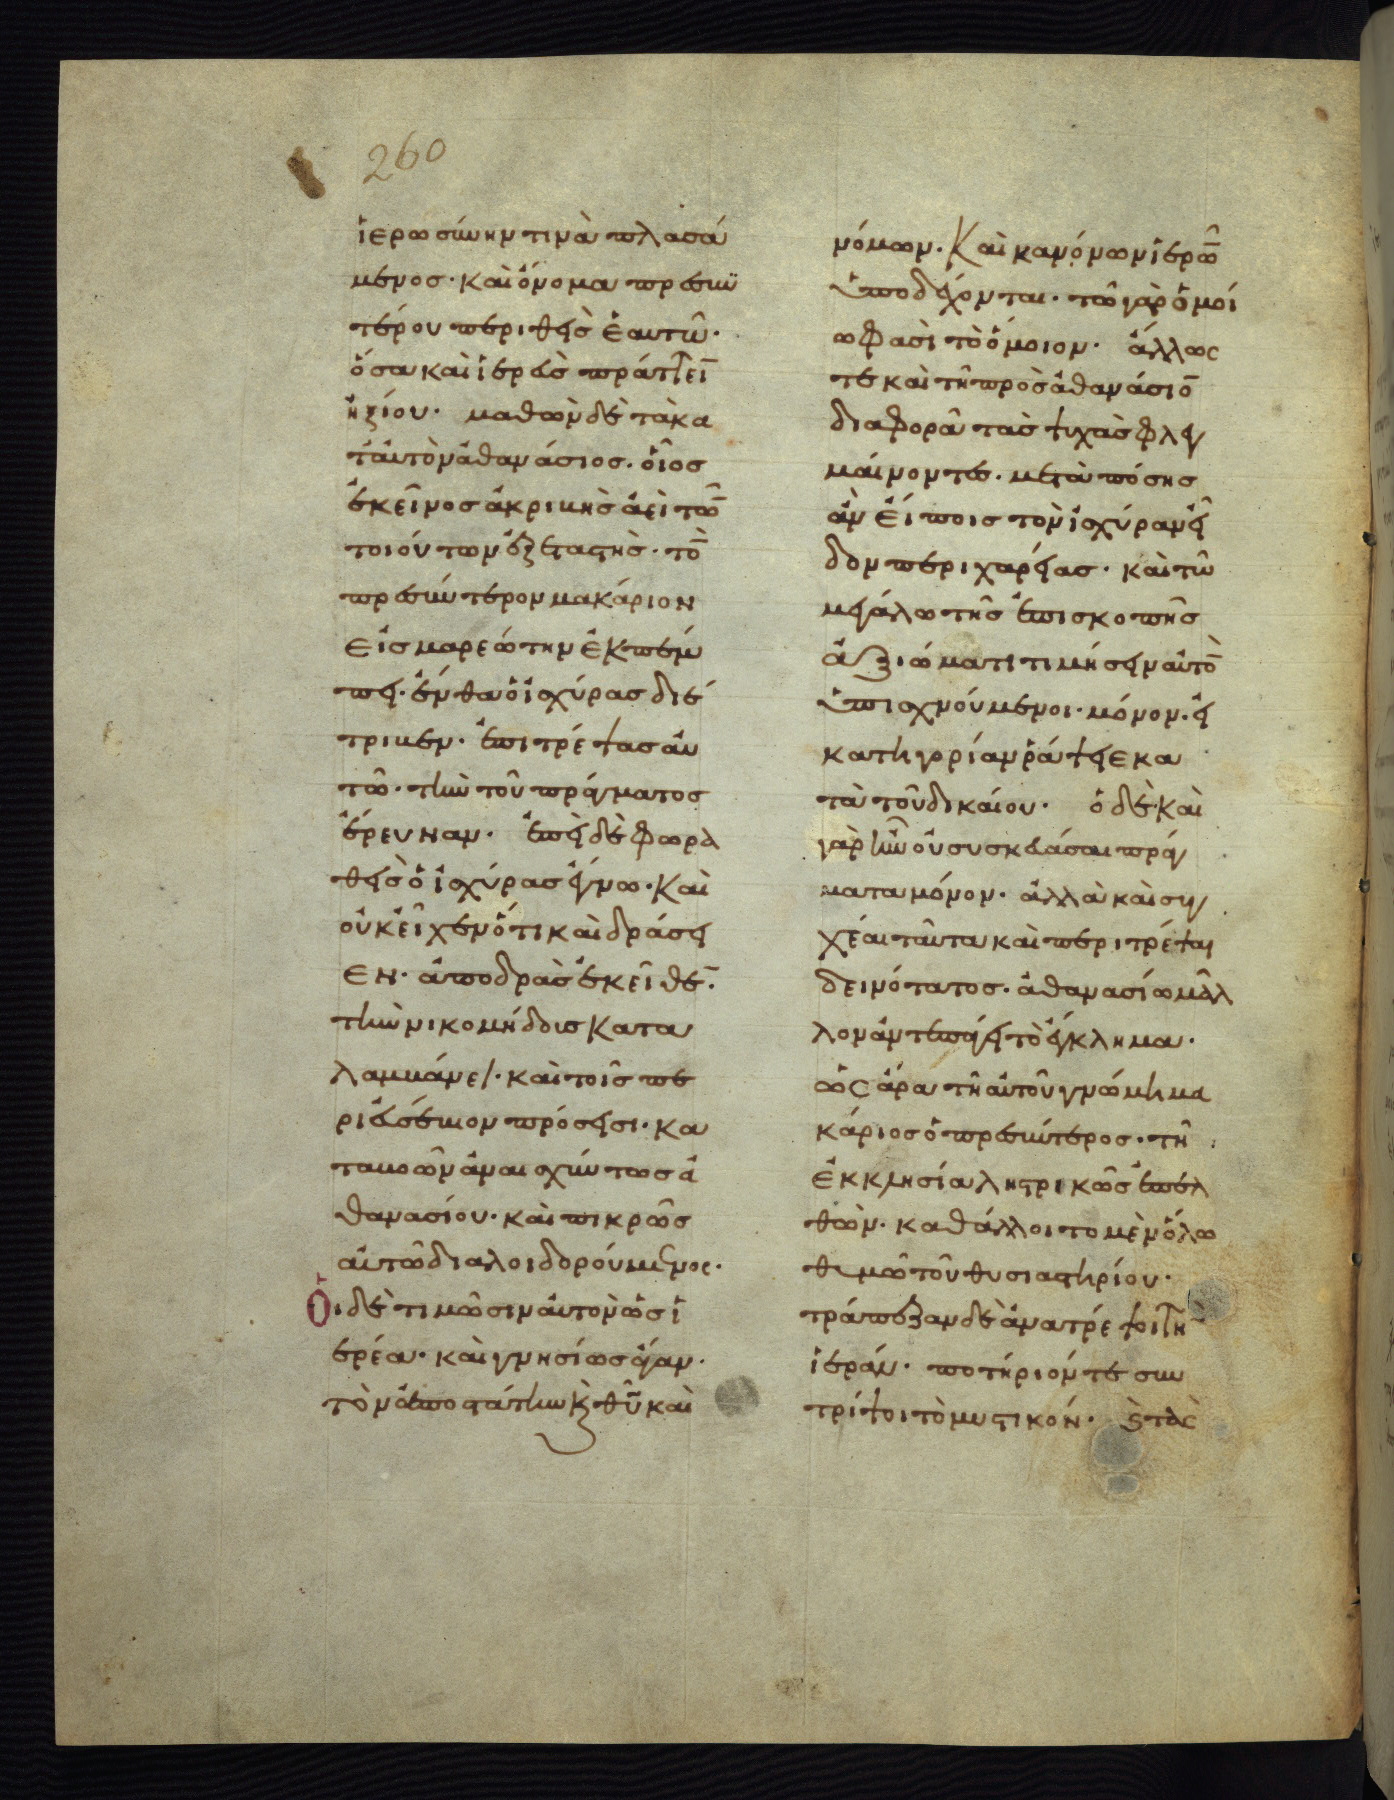 260
ἱερωσύνην τινὰ πλασά
μενος· καὶ ὄνομα πρεσβυ
τέρου περιθεὶς ἑαυτῶ·
ὅσα καὶ ἱερεὺς πράττειν
ἠξίου· μαθὼν δὲ τὰ κα
τ' αὐτὸν ἀθανάσιος· οἷος
ἐκεῖνος ἀκριβὴς ἀεὶ τῶν
τοιούτων ἐξεταστὴς· τὸν
πρεσβύτερον μακάριον
εἰς μαρεώτην ἐκπέμ
πει· ἔνθα ὁ ἰσχύρας διέ
τριβεν· ἐπιτρέψας αὐ
τῶ· τὴν τοῦ πράγματος
ἔρευναν· ἐπεὶ δὲ φωρα
θεὶς ὁ ἰσχύρας ἔγνω· καὶ
οὐκ εἶχεν ὅτι καὶ δράσει
εν· ἀποδρὰς ἐκεῖθεν·
τὴν νικομήδους κατα
λαμβάνει· καὶ τοῖς πε
ρὶ εὐσέβιον πρόσεισι· κα
ταβοῶν ἀναισχύντως ἀ
θανασίου· καὶ πικρῶς
αὐτῶ διαλοιδορούμενος·
Οἱ δὲ τιμῶσιν αὐτὸν ὡς ἱ
ερέα· καὶ γνησίως ἄγαν·
τὸν ἀποστάτην κ(αὶ) θυ καὶ
νόμων· Καὶ κανόνων ἱερῶν
ὑποδέχονται· τῶ γὰρ ὁμοί
ω φασὶ τὸ ὅμοιον· ἄλλως
τε καὶ τῆ πρὸς ἀθανάσιον
διαφορᾶ τὰς ψυχὰς φλεγ
μαίνοντες· μετὰ πόσης
ἂν εἴποις τὸν ἰσχύραν εἶ
δον περιχαρείας· καὶ τῶ
μεγάλω τῆς ἐπισκοπῆς
ἀξιώματι τιμήσειν αὐτὸν
ὑπισχνούμενοι· μόνον· εἰ
κατηγορίαν ῥάψειε κα
τὰ τοῦ δικαίου· ὁ δὲ· καὶ
γὰρ ἦν οὐ συσκευάσαι πράγ
ματα μόνον· ἀλλὰ καὶ συγ
χέαι ταῦτα καὶ περιτρέψαι
δεινότατος· ἀθανασίω μᾶλ
λον ἀντεπάγει τὸ ἔγκλημα·
ὡς ἄρα τῆ αὐτοῦ γνώμη μα
κάριος ὁ πρεσβύτερος· τῆ
ἐκκλησία ληστρικῶς ἐπελ
θὼν· καθάλλοιτο μὲν ὅλω
θυμῶ τοῦ θυσιαστηρίου·
τράπεζαν δὲ ἀνατρέψοι τὴν
ἱεράν· ποτήριόν τε συν
τρίψοι τὸ μυστικόν· κ(αὶ) τὰς